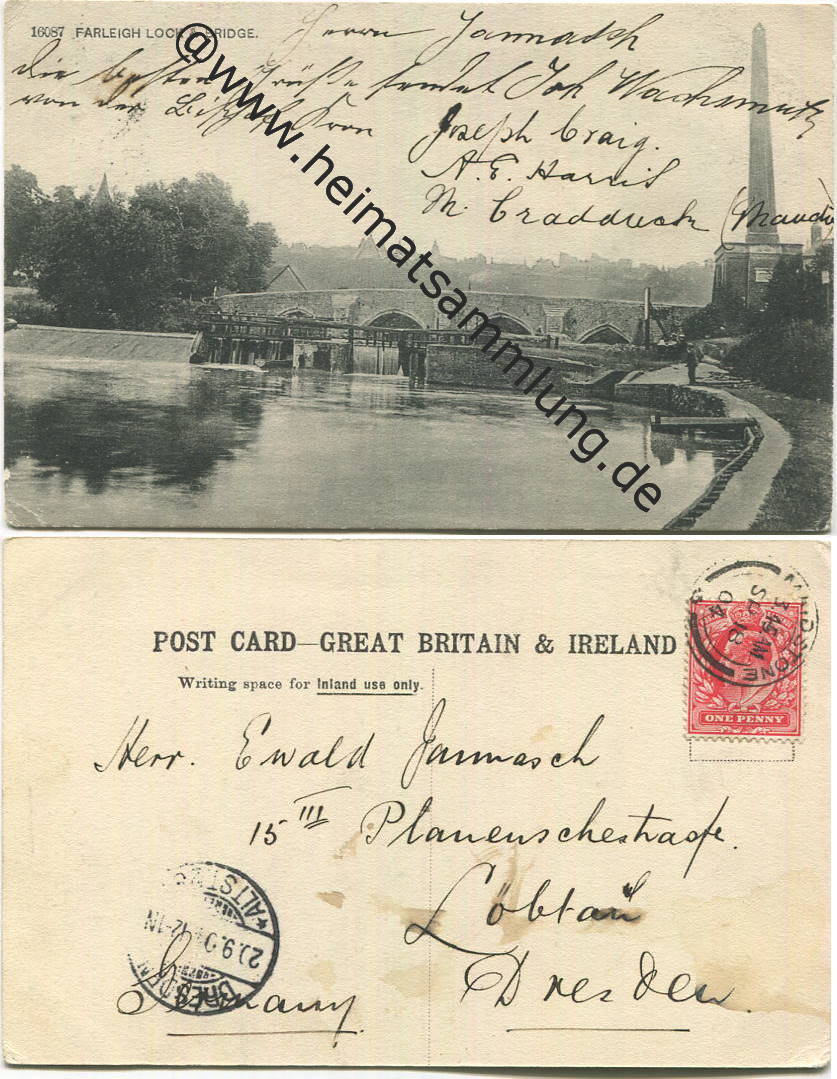 16087 FARLEIGH LOCK & BRIDGE.
Herrn Jannasch
Die besten Grüße sendet Joh Wachsmuth
von der
Joseph Craig.
A. E. Harris
M. Cradduck (Maude)
@www.heimatsammlung.de
POST CARD—GREAT BRITAIN & IRELAND
Writing space for Inland use only.
MAIDSTONE
3.45AM
SP 18
04
ONE PENNY
Herr. Ewald Jannasch
15 III Planenschestrasse.
Löbtau
Dresden.
Germany
DRESDEN
ALTST.
20.9.04 12-1N